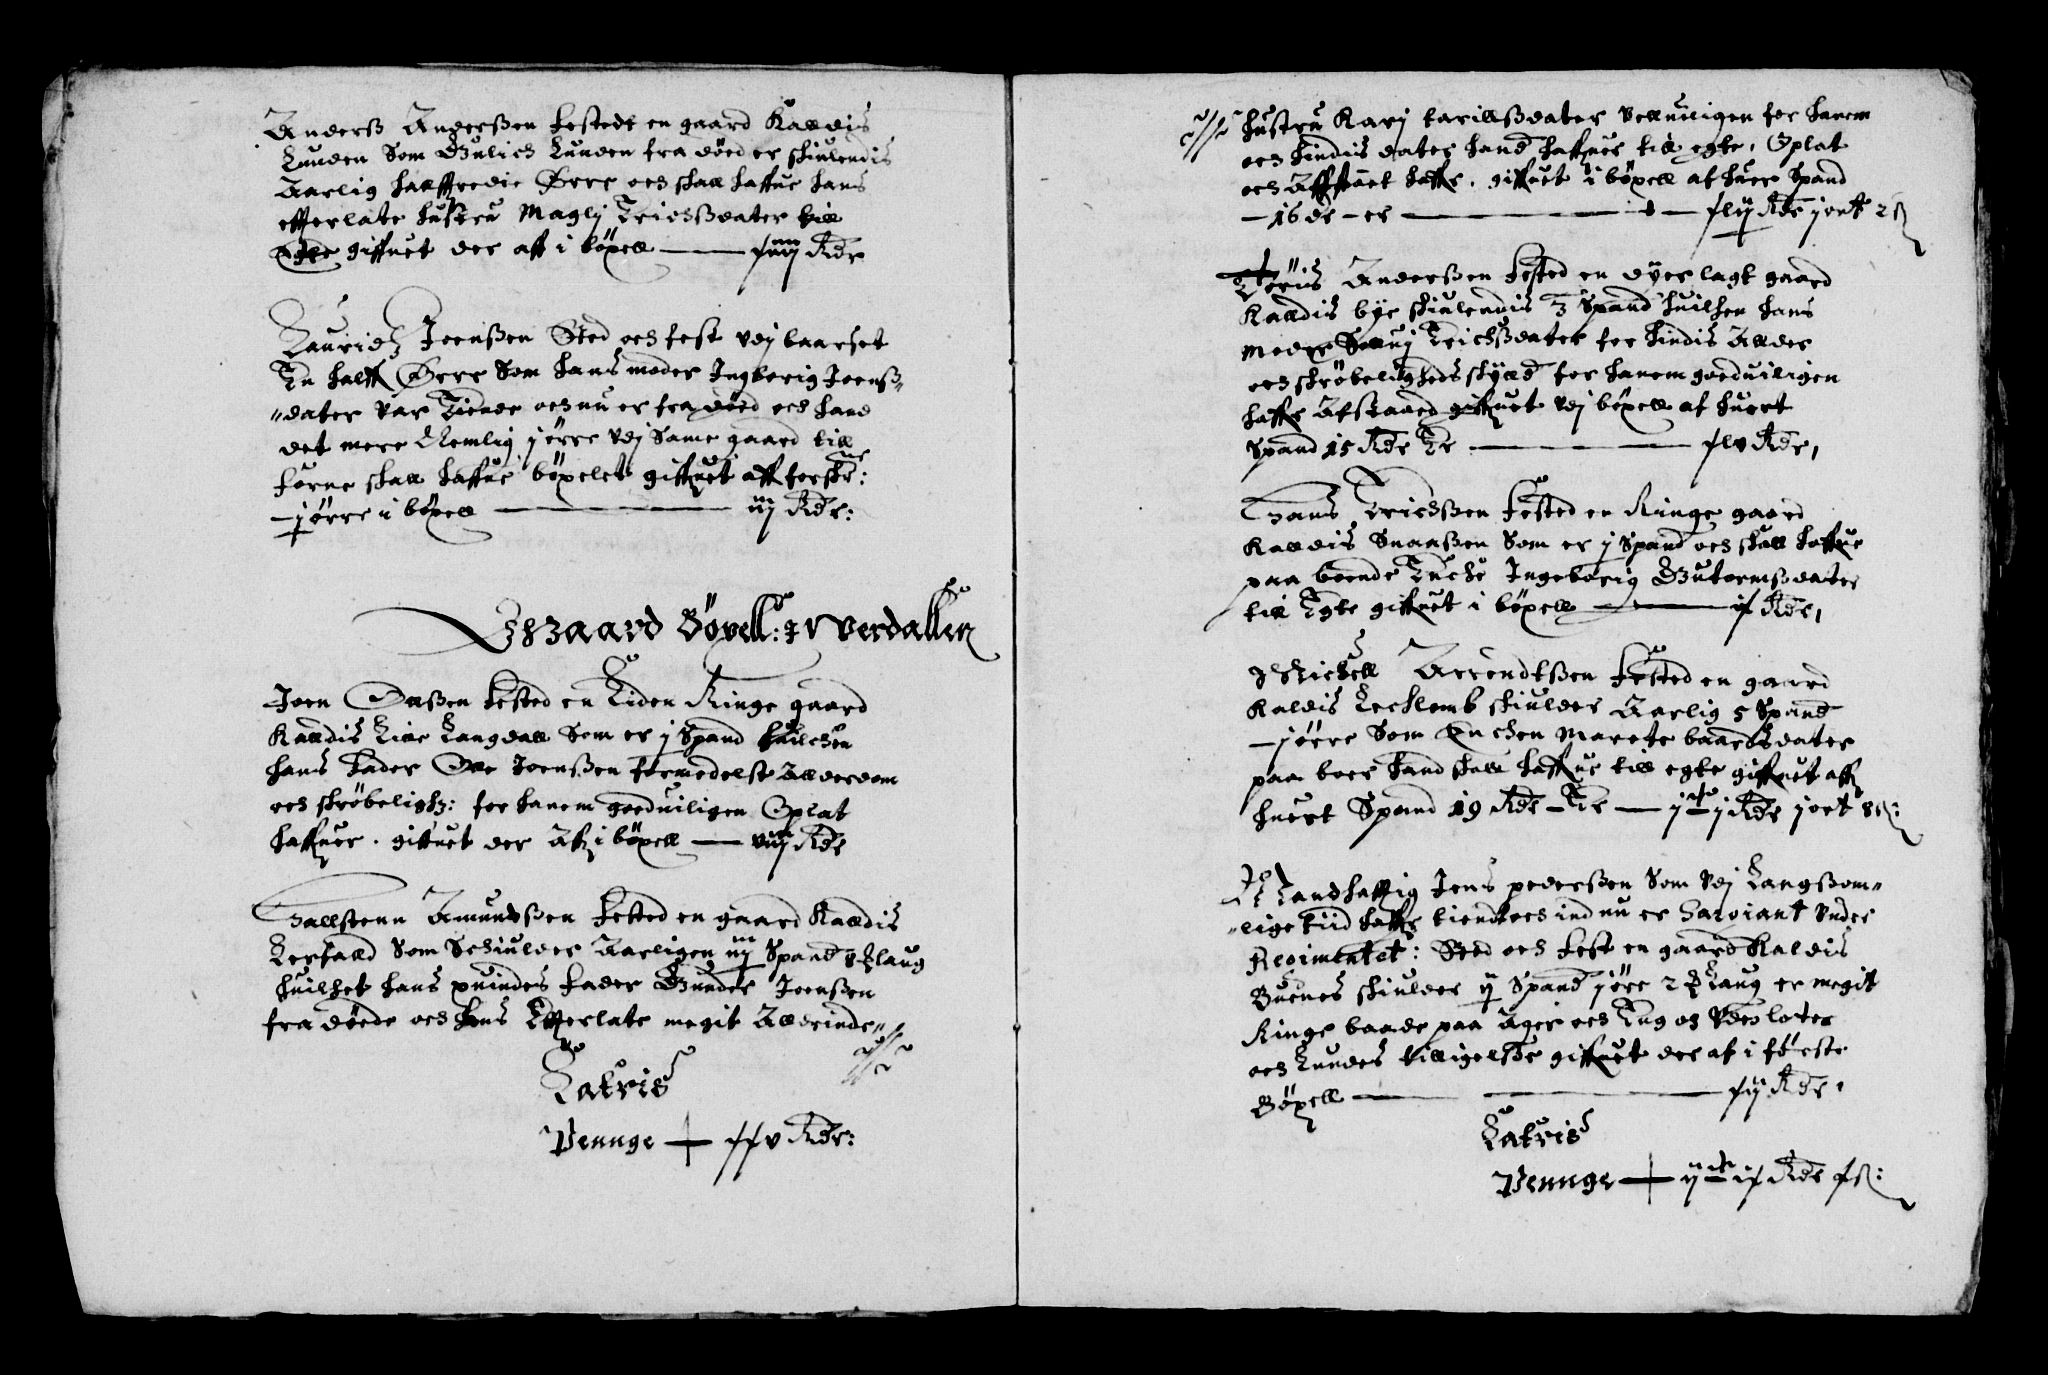 Anderß Anderßen festede en gaard Kalldis
Lunden Som Gulich Lunden fra døed er skiulendis
Aarlig halffredie Ørre och skall haffue hans
effterlate hustru Maglj Erichßdater till
Egte giffuet der aff i böxell — xiiij Rdr
Lauridz Joenßen Sted och fest vdj baarset
En halff Ørre Som hans moder Ingborig Joenß„
„dater var Eiende och nu er fra døed och hand
det mere Nemlig j ørre vdj Same gaard till
forne skall haffue böxelet giffuet aff forskr:ne
— j ørre i böxell — iij Rdr:
Jggaard Böxell: i Verdallen
Joen Oelßen fested en Liden Ringe gaard
Kalldis Lille Langdall Som er j Spand huilchen
hans fader Olle Joenßen formedelst Allderdom
och skröbelighz: for hanem goduiligen Oplat
haffuer. giffuet der Aff i böxell — viij Rdr
Hallstenn Amundßen fested en gaard Kalldis
Lerfald Som Schiulder Aarligen iij Spand 8 ℔laug
huilchet hans quindes fader Gunder Joenßen
fra døede och hans Efterlate megit Allderinde„
Latris
Pennge — xxv Rdr:
hustru Karj toruillßdater velluiligen for hanem
och hindis dater hand haffuer till egte, Oplat
och Affstaaet haffr. giffuet i böxell af huer Spand
— 16 dr — er — xlij Rdr j ort 2 ß
Töris Anderßen fested en Øyer lagt gaard
Kalldis bye skiulendis 3 Spand huilken hans
Moder Sollauj Erichßdater for hindis Allder
och skröbeligheds skylld for hanem goeduiligen
haffr Afstaaed giffuet vdj böxell af huert
Spand 15 Rdr Er — xlv Rdr,
Hans Erichßen fested en Ringe gaard
Kalldis Snaaßen Som er j Spand och skall haffue
paa boende Enche Ingeborig Gutormßdater
till Egte giffuet i böxell — ix Rdr,
Michell Arrendtßen fested en gaard
Kaldis Lecklemb skiulder Aarlig 5 Spand
— j ørre Som Enchen Marete baardsdater
paa boer hand skall haffue till egte giffuet aff
huert Spand 19 Rdr — Er — j c j Rdr j ort 8 ß:
Landhafftig Jens pederßen Som vdj Langßom„
„lige tiid haffr tientt och ind nu er Sarviant Vnder
Regimentet: Sted och fest en gaard Kaldis
Buenes skiulder ij Spand j öre 2 ℔ laug er megit
Ringe baade paa Ager och Eng og Vdeolater
och Lundes tilligelßr giffuet der af i förste
Böxell — xij Rdr,
Latris
Pennge — ij c ix Rdr x ß: